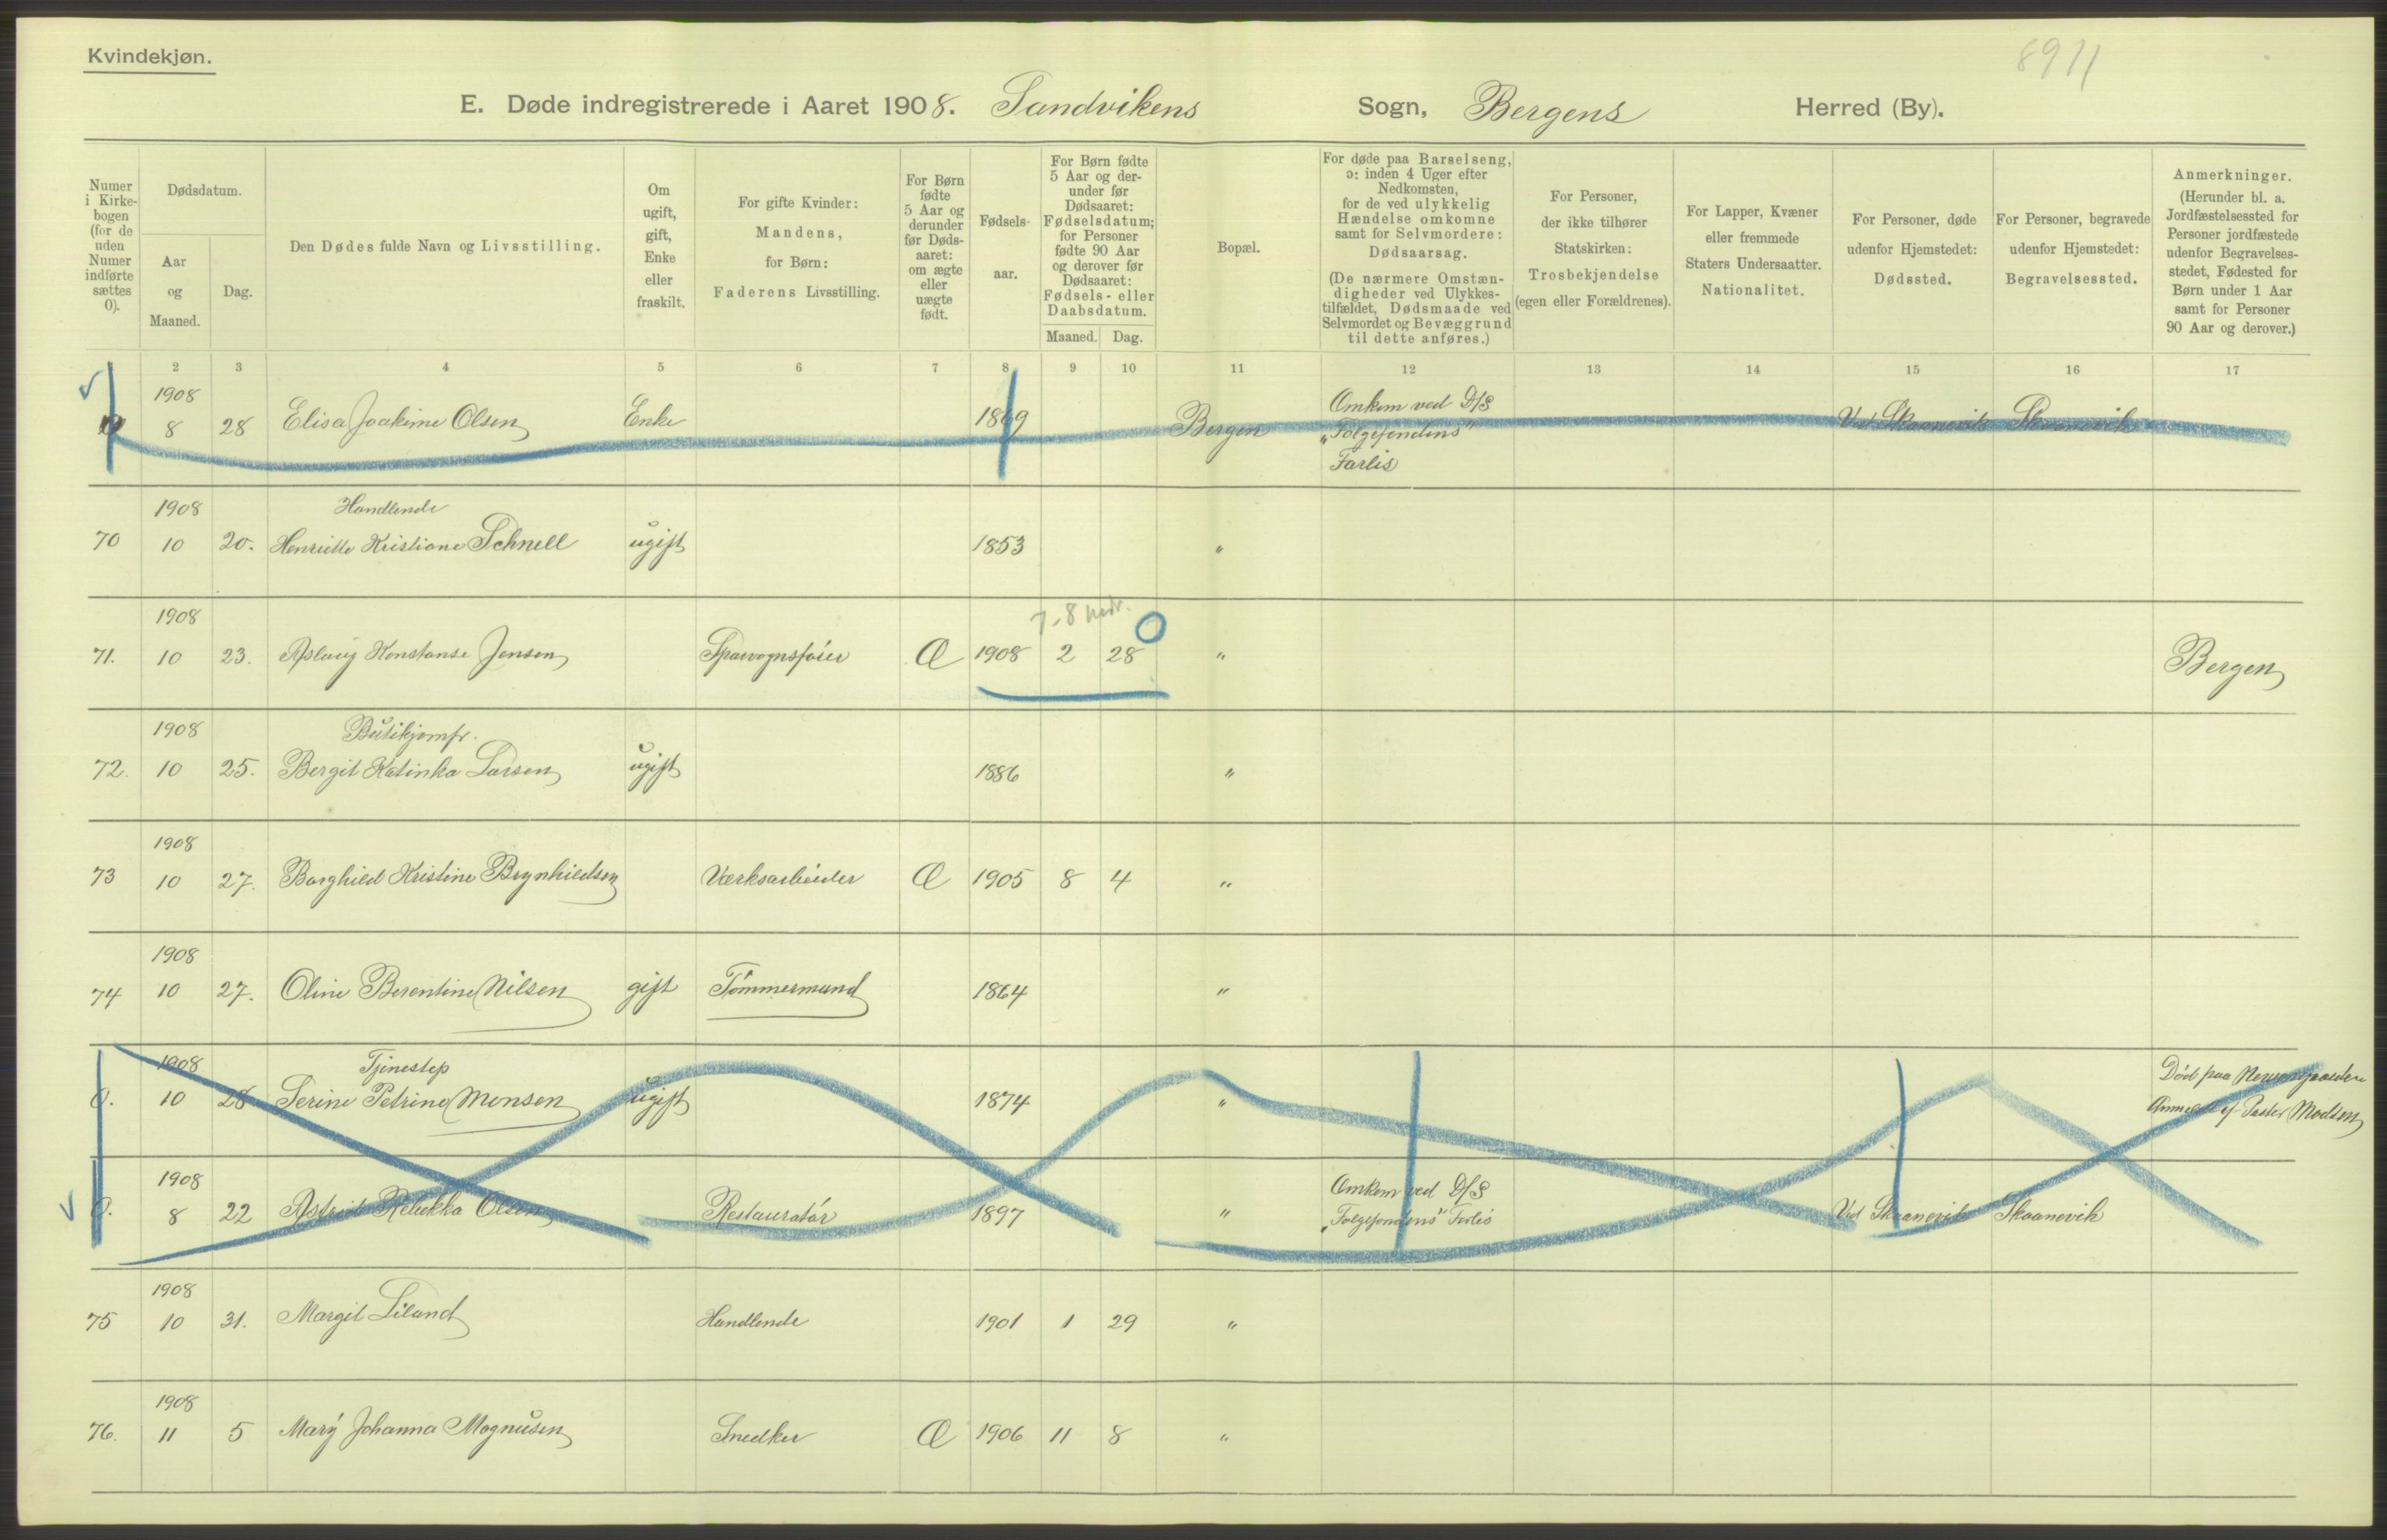 Kvindekjøn.
8911
E. Døde indregistrerede i Aaret 1908. Sandvikens Sogn, Bergens Herred (By).
Numer i Kirkebogen (for de uden Numer indførte sættes 0).
Dødsdatum.
Aar og Maaned.
Dag.
Den Dødes fulde Navn og Livsstilling.
Om ugift, gift, Enke eller fraskilt.
For gifte Kvinder: Mandens, for Børn: Faderens Livsstilling.
For Børn fødte 5 Aar og derunder før Dødsaaret: om ægte eller uægte født.
Fødselsaar.
For Børn fødte 5 Aar og derunder før Dødsaaret: Fødselsdatum; for Personer fødte 90 Aar og derover før Dødsaaret: Fødsels- eller Daabsdatum.
Maaned. Dag.
Bopæl.
For døde paa Barselseng, ɔ: inden 4 Uger efter Nedkomsten, for de ved ulykkelig Hændelse omkomne samt for Selvmordere: Dødsaarsag. (De nærmere Omstændigheder ved Ulykkestilfældet, Dødsmaade ved Selvmordet og Bevæggrund til dette anføres.)
For Personer, der ikke tilhører Statskirken: Trosbekjendelse (egen eller Forældrenes).
For Lapper, Kvæner eller fremmede Staters Undersaatter. Nationalitet.
For Personer, døde udenfor Hjemstedet: Dødssted.
For Personer, begravede udenfor Hjemstedet: Begravelsessted.
Anmerkninger. (Herunder bl. a. Jordfæstelsessted for Personer jordfæstede udenfor Begravelsesstedet, Fødested for Børn under 1 Aar samt for Personer 90 Aar og derover.)
2 3 4 5 6 7 8 9 10 11 12 13 14 15 16 17
1908 8 28 Elisa Joakime Olsen Enke 1869 Bergen Omkom ved D/S „Folgefondens" Forlis Ved Skaanevik Skaanevik
70 1908 10 20. Handlende Henriette Kristiane Schnell ugift 1853 "
7-8 mdr.
71. 1908 10 23. Aslaug Konstanse Jensen Sporvognsfører Æ 1908 2 28 " Bergen
72. 1908 10 25. Butikjomfr. Bergit Katinka Larsen ugift 1886 "
73 1908 10 27. Borghild Kristine Brynhildsen Værksarbeider Æ 1905 8 4 "
74 1908 10 27. Oline Berentine Nilsen gift Tømmermand 1864 "
0. 1908 10 28 Tjenestep Serine Petrine Monsen ugift 1874 " Død paa Neevengaarden Anmeldt af Pastor Madsen
0. 1908 8 22 Astrid Rebekka Olsen Restauratør 1897 " Omkom ved D/S „Folgefondens" Forlis Ved Skaanevik Skaanevik
75 1908 10 31. Margit Liland Handlende 1901 1 29 "
76. 1908 11 5 Mary Johanna Magnusen Snedker Æ 1906 11 8 "